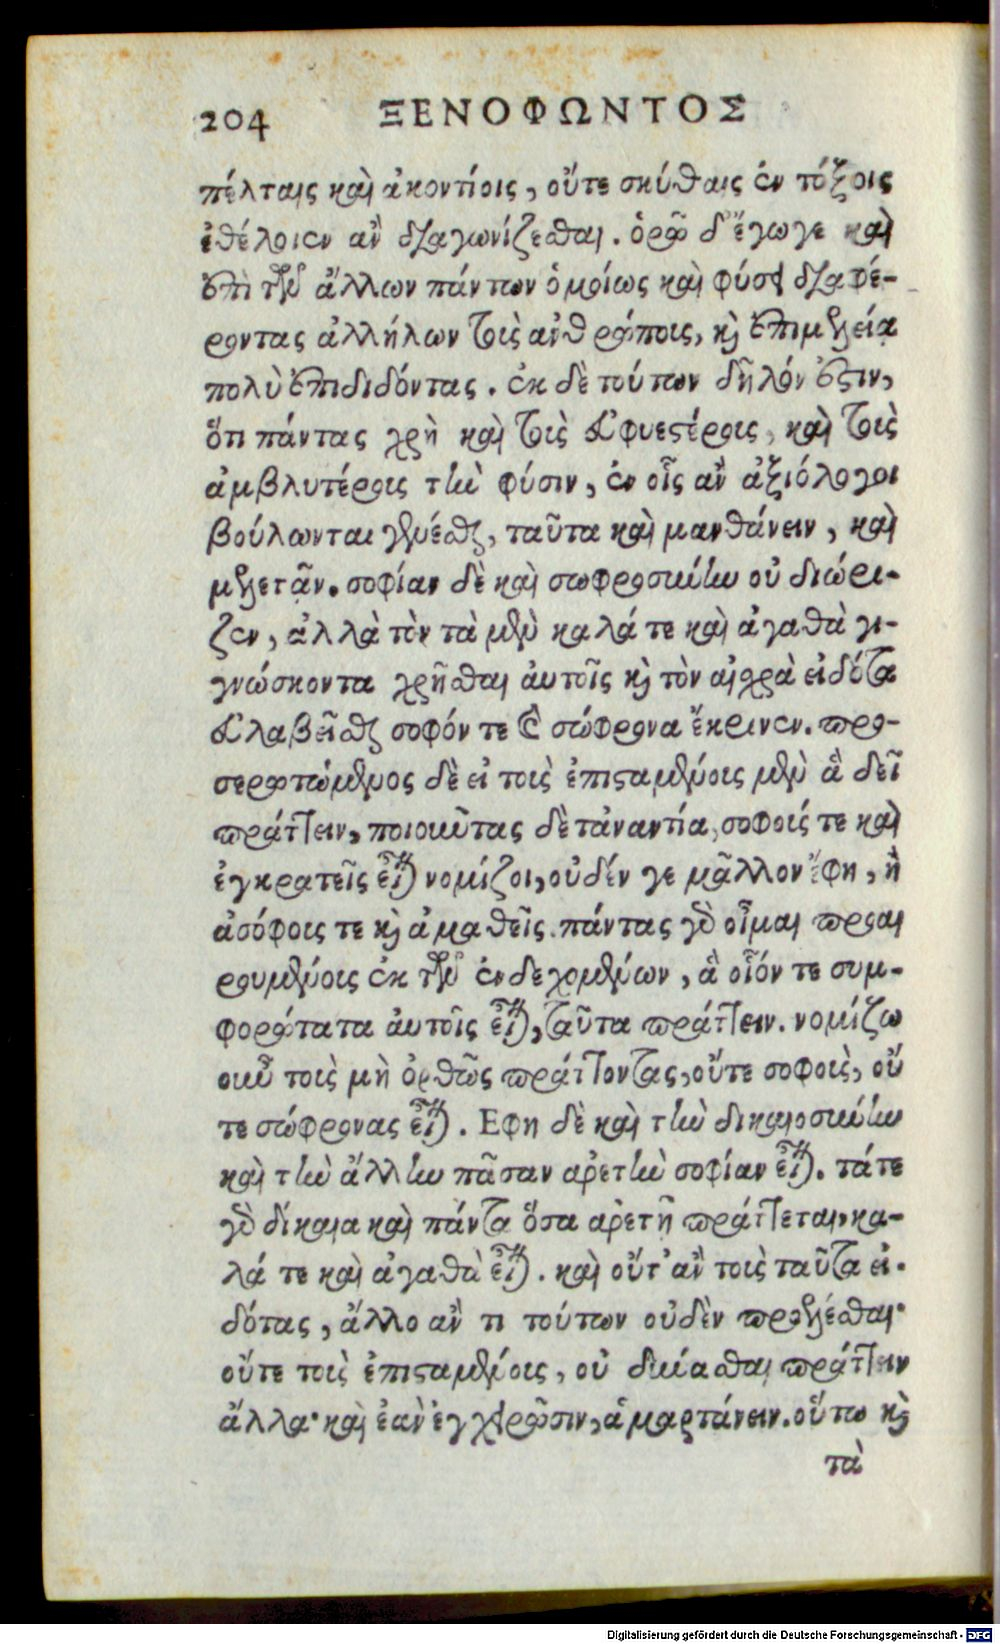 204 ΞΕΝΟΦΩΝΤΟΣ
πέλταις καὶ ἀκοντίοις, οὔτε σκύθαις ἐν τόξοις
ἐθέλοιεν ἂν διαγωνίζεσθαι. ὁρῶ δ' ἔγωγε καὶ
ἐπὶ τῶν ἄλλων πάντων ὁμοίως καὶ φύσει διαφέ-
ροντας ἀλλήλων τοὺς ἀνθρώποις, κὶ ἐπιμελείᾳ
πολὺ ἐπιδιδόντας. ἐκ δὲ τούτων δῆλόν ἐστιν,
ὅτι πάντας χρὴ καὶ τοὺς εὐφυεστέροις, καὶ τοὺς
ἀμβλυτέροις τὴν φύσιν, ἐν οἷς ἂν ἀξιόλογοι
βούλωνται γενέσθαι, ταῦτα καὶ μανθάνειν, καὶ
μελετᾶν. σοφίαν δὲ καὶ σωφροσύνην οὐ διώρι-
ζεν, ἀλλὰ τὸν τὰ μὲν καλά τε καὶ ἀγαθὰ γι-
γνώσκοντα χρῆσθαι ἀυτοῖς κὶ τὸν αἰσχρὰ εἰδότα
εὐλαβεῖσθαι σοφόν τε καὶ σώφρονα ἔκρινεν. προ-
σερωτώμενος δὲ εἰ τοὺς ἐπισταμένοις μὲν ἃ δεῖ
πράττειν, ποιοῦντας δὲ τἀναντία, σοφούς τε καὶ
ἐγκρατεῖς εἶναι νομίζοι, οὐδέν γε μᾶλλον ἔφη, ἢ
ἀσόφοις τε κὶ ἀμαθεῖς. πάντας γὰρ οἶμαι προαι
ρουμένοις ἐκ τῶν ἐνδεχομένων, ἃ οἷόν τε συμ-
φορώτατα ἀυτοῖς εἶναι, ταῦτα πράττειν. νομίζω
οὖν τοὺς μὴ ὀρθῶς πράττοντας, οὔτε σοφοὺς, οὔ
τε σώφρονας εἶναι. Εφη δὲ καὶ τὴν δικαιοσύνην
καὶ τὴν ἄλλην πᾶσαν ἀρετὴν σοφίαν εἶναι. τά τε
γὰρ δίκαια καὶ πάντα ὅσα ἀρετῇ πράττεται, κα-
λά τε καὶ ἀγαθὰ εἶναι. καὶ οὔτ' ἂν τοὺς ταῦτα εἰ-
δότας, ἄλλο ἂν τι τούτων οὐδὲν προελέσθαι·
οὔτε τοὺς ἐπισταμένοις, οὐ δύνασθαι πράττειν
ἄλλα· καὶ ἐὰν ἐγχειρῶσιν, ἁμαρτάνειν. οὕτω κὶ
τὰ
Digitalisierung gefördert durch die Deutsche Forschungsgemeinschaft - DFG